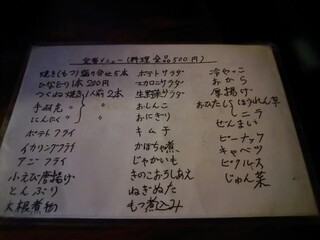 定番メニュー(料理全品500円)
焼き(もつ)盛り合せ5本
ひなどり1本200円
つくね焼き1人前2本
手羽先 〃 〃
にんにく 〃 〃
ポテトフライ
イカリングフライ
アジフライ
小えび唐揚げ
とんぶり
大根煮物
ポテトサラダ
マカロニサラダ
生野菜サラダ
おしんこ
おにぎり
キムチ
かぼちゃ煮
じゃがいも
きのこおろしあえ
ねぎぬた
もつ煮込み
冷やっこ
おから
厚揚げ
おひたし ほうれん草
ニラ
ぜんまい
ピーナッツ
キャベツ
ピクルス
じゅん菜